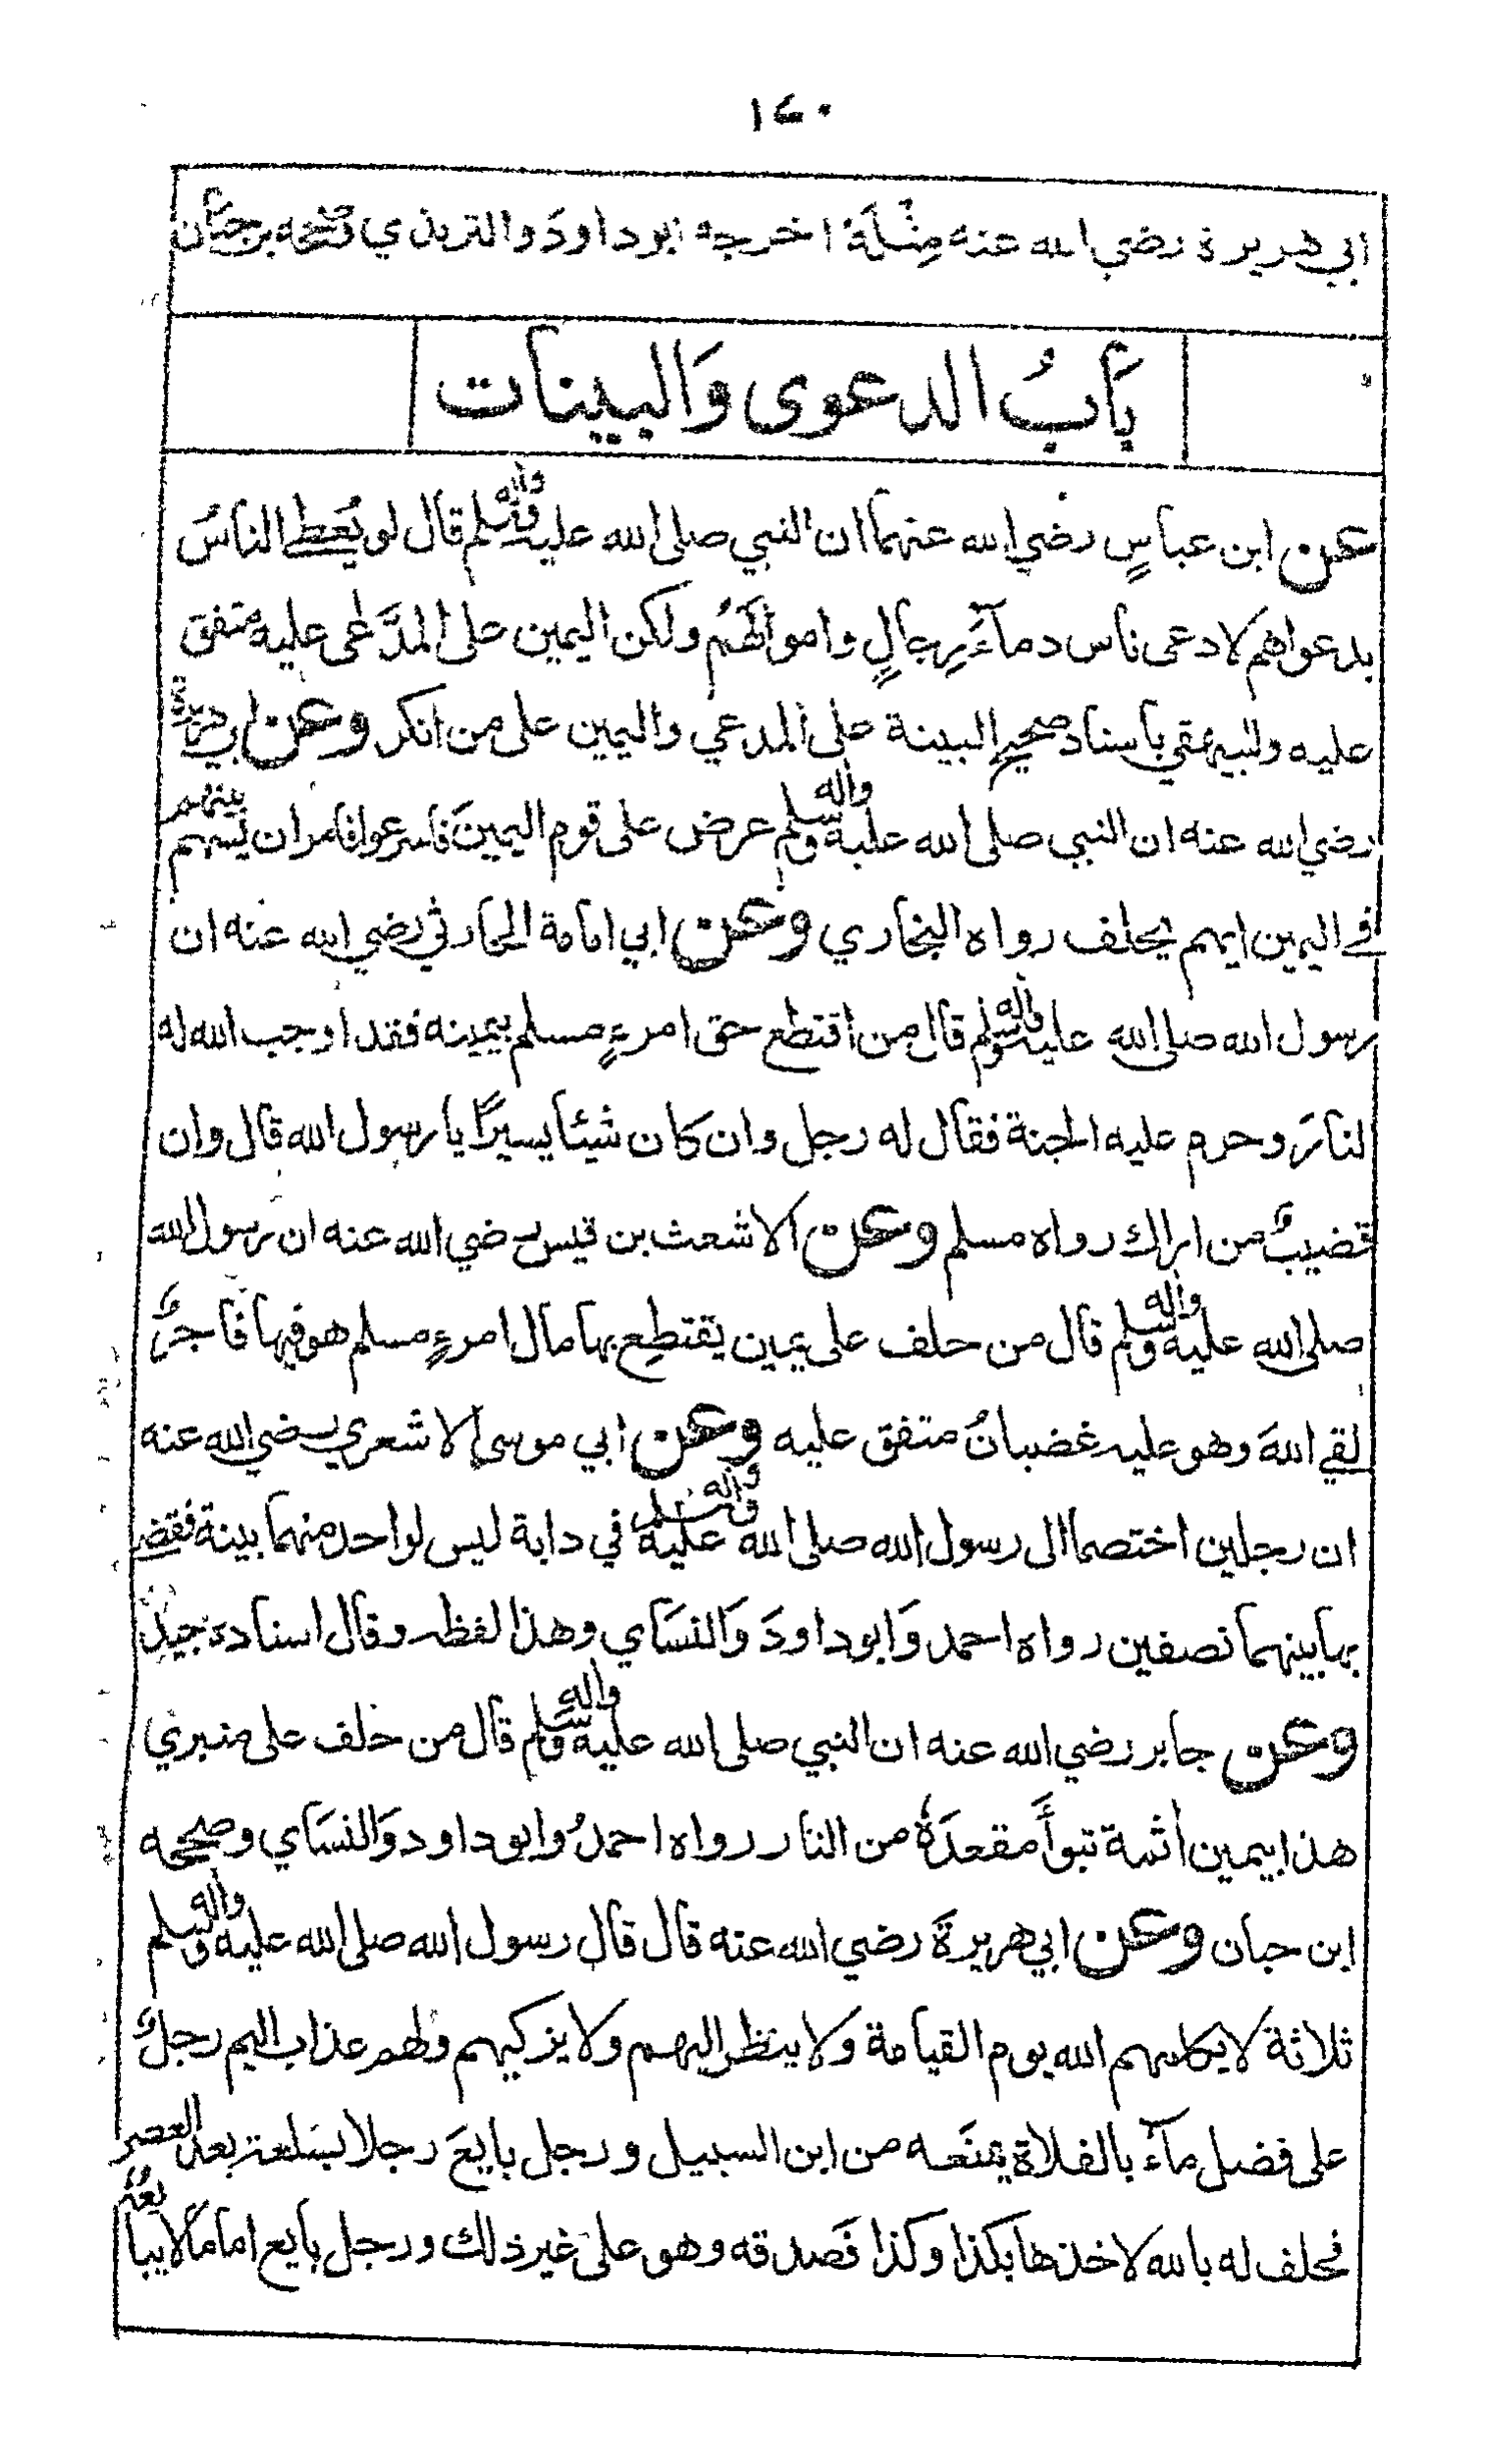 ١٤٠
ابي هريرة رضي الله عنه مِثْلَهٗ اخرجه ابوداودَ والترمذي وصححه ابن حبَّان
بَابُ الدعوى وَالبينات
عن ابن عباسٍ رضي الله عنهما ان النبي صلى الله عليه واٰله وسلم قال لو يُعطے الناسُ
بدعواهم لادعى ناس دمآءَ رِجالٍ واموالَهُم ولكن اليمين على المدَّعى عليه متفق
عليه وللبيهقي باسناد صحيح البينة على المدعي واليمين على من انكر وعن ابي هريرة
رضي الله عنه ان النبي صلى الله عليه واٰله وسلم عرض على قوم اليمينَ فاسرعوا فامر ان يسهم بينهم
في اليمين ايهم يحلف رواه البخاري وعن ابي امامة الحارثي رضي الله عنه ان
رسول الله صلى الله عليه واٰله وسلم قال من اقتطع حق امرءٍ مسلم بيمينه فقد اوجب الله له
لنارَ وحرم عليه الجنة فقال له رجل وان كان شيئا يسيرًا يا رسول الله قال وان
قضيبٌ من اراك رواه مسلم وعن الاشعث بن قيس رضي الله عنه ان رسول الله
صلى الله عليه واٰله وسلم قال من حلف على يمين يقتطِع بها مال امرءٍ مسلم هو فيها فاجرٌ
لقي اللهَ وهو عليه غضبانُ متفق عليه وعن ابي موسى الاشعري رضي الله عنه
ان رجلين اختصما الى رسول الله صلى الله عليه واٰله وسلم في دابة ليس لواحد منهما بينة فقضے
بها بينهما نصفين رواه احمد وَابوداودَ وَالنسَاي وهذا لفظه وقال اسناده جيد
وعن جابر رضي الله عنه ان النبي صلى الله عليه واٰله وسلم قال من حلف على منبري
هذا بيمين اٰثمة تبوأَ مقعدَهٗ من النار رواه احمدُ وابوداود وَالنسَاي وصححه
ابن حبان وعن ابي هريرةَ رضي الله عنه قال قال رسول الله صلى الله عليه واٰله وسلم
ثلاثة لا يكلمهم الله يوم القيامة ولا ينظر اليهم ولا يزكيهم ولهم عذاب اليم رجلٌ
على فضل مآء بالفلاة يمنَعه من ابن السبيل ورجل بايعَ رجلا بسَلعة بعد العصر
فحلف له بالله لاخذها بكذا وكذا فصَدقه وهو على غير ذلك ورجل بايع امامًا لا يبايعُه